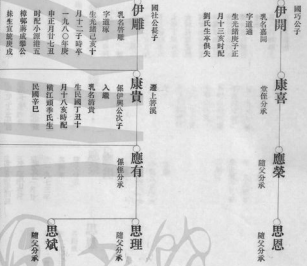 國巧公子
伊開
乳名嘉開
字道通
生光緒庚子正
月十三亥时配
劉氏生卒俱失
康喜
堂侄分承
應榮
隨父分承
思恩
隨父分承
國社公長子
伊雕
乳名啓雕
字道琢
生光緒己亥十
月十二子時卒
一九八〇年庚
申正月廿七丑
时配小淤清五
樟鄒满成攀公
妹生宣統庚戌
遷上苦溪
康貴
係伊興公次子
入繼
乳名清貴
生民國丁丑十
月十八亥時配
橫江頭李氏生
民國辛巳
應有
係侄分承
思理
隨父分承
思斌
隨父分承